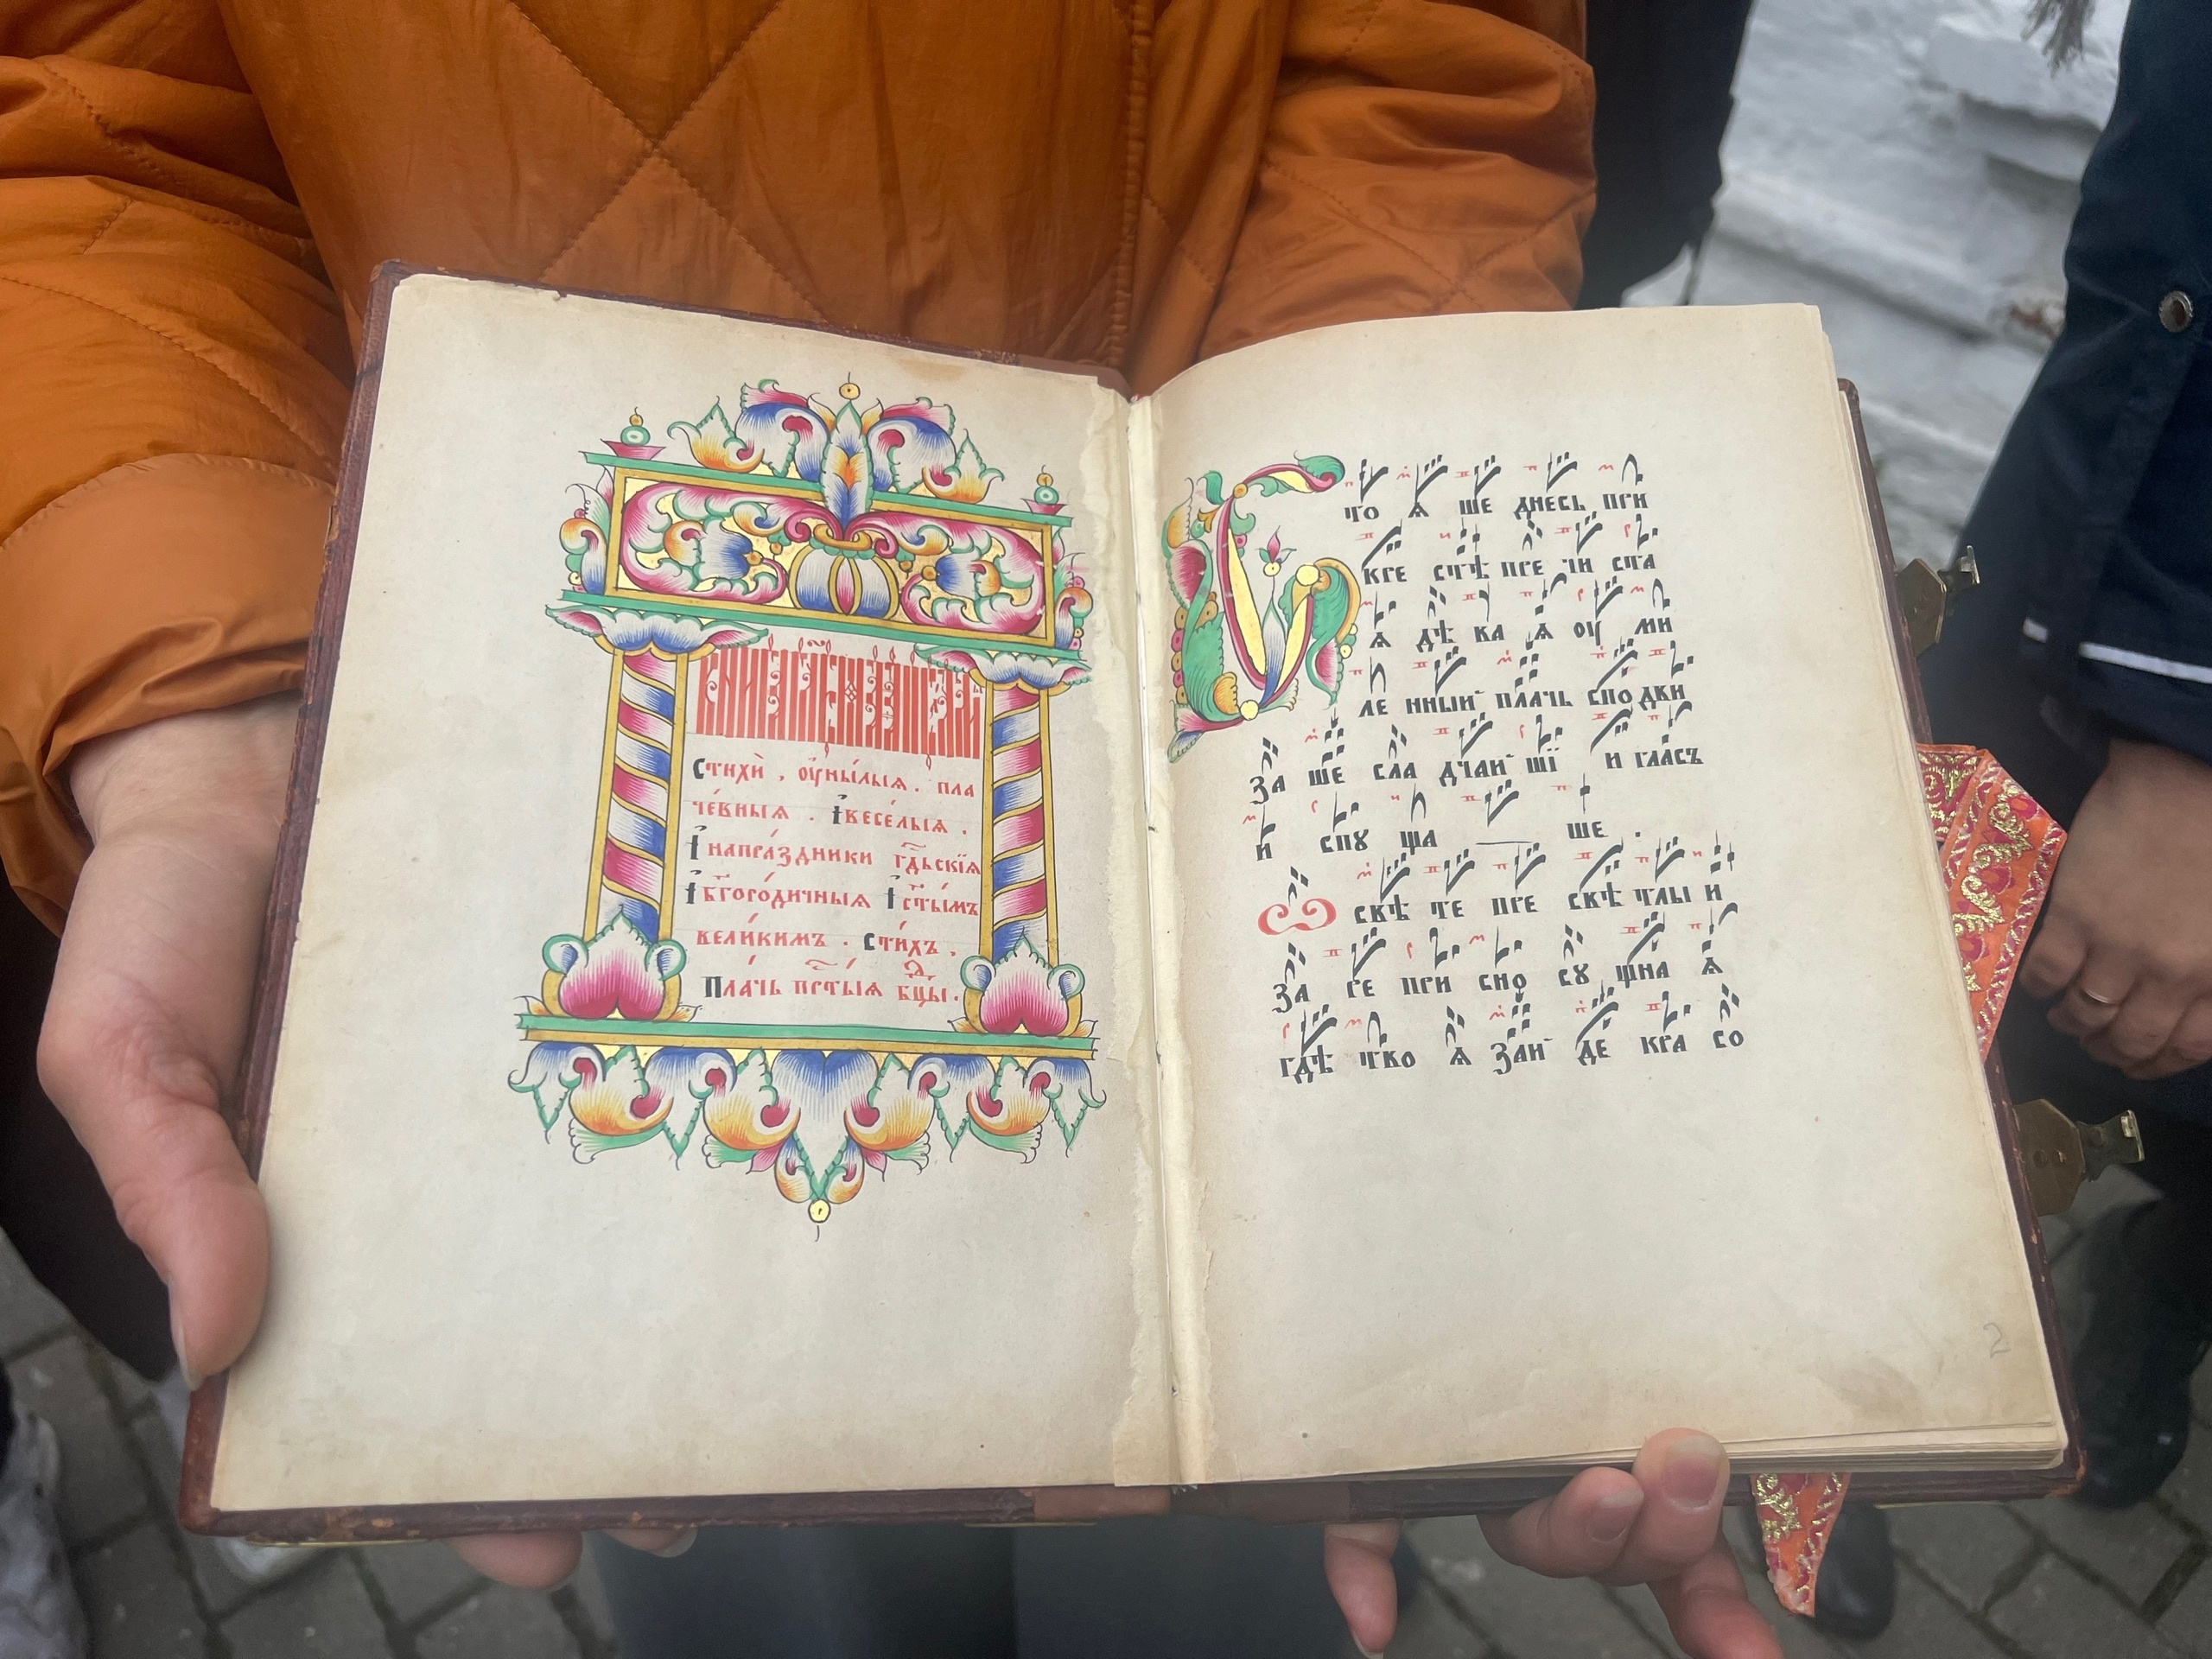 Стихѝ , оу҆ны́лыѧ . пла
че́вныѧ . І҆весе́лыѧ .
І҆ напра́здники гд҇ьскїѧ
І҆ бг҃оро́дичныѧ І҆ ст҃ы́мъ
вели́кимъ . Сти́хъ .
Пла́чь прт҃ы́ѧ бц҃ы .
С то ѧ ше днесь при
кре стѣ пре чи ста
ѧ дѣ ва ѧ оу ми
ле нный плачь спо дви
за ше сла дчай шї и гласъ
и спꙋ ща ше .
Ѽ свѣ те пре свѣ тлы и
за ре при сно сꙋ щна ѧ
гдѣ тво ѧ зай де кра со
2